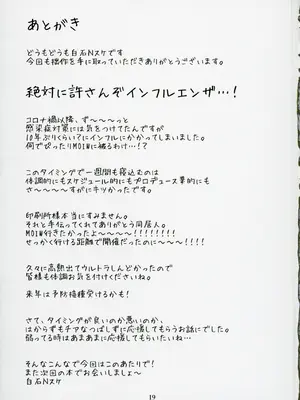 あとがき
どうもどうも白石Nスケです
今回も拙作を手に取っていただきありがとうございます。
絶対に許さんぞインフルエンザ…!
コロナ禍以降、ず〜〜〜っと
感染症対策には気をつけてたんですが
10年ぶりくらいにインフルにかかってしまいました。
何でぴったりMOIWに被るわけ…!?
このタイミングで一週間も寝込むのは
体調的にもスケジュール的にもプロデュース業的にも
さ〜〜〜〜すがにキツかったです。
印刷所様本当にすみません。
それと手伝ってくれてありがとう同居人。
MOIW行きたかったよ〜〜〜〜!!!!!!!!
せっかく行ける距離で開催だったのに〜〜〜!
久々に高熱出てウルトラしんどかったので
皆様も体調お気を付けくださいね。
来年は予防接種受けるかも!
さて、タイミングが良いのか悪いのか、
はからずもチアなつばしずに応援してもらうお話にでした。
弱ってる時はあまあまに応援してもらいたいね…
そんなこんなで今回はこのあたりで!
また次回の本でお会いしましょ〜
白石Nスケ
19